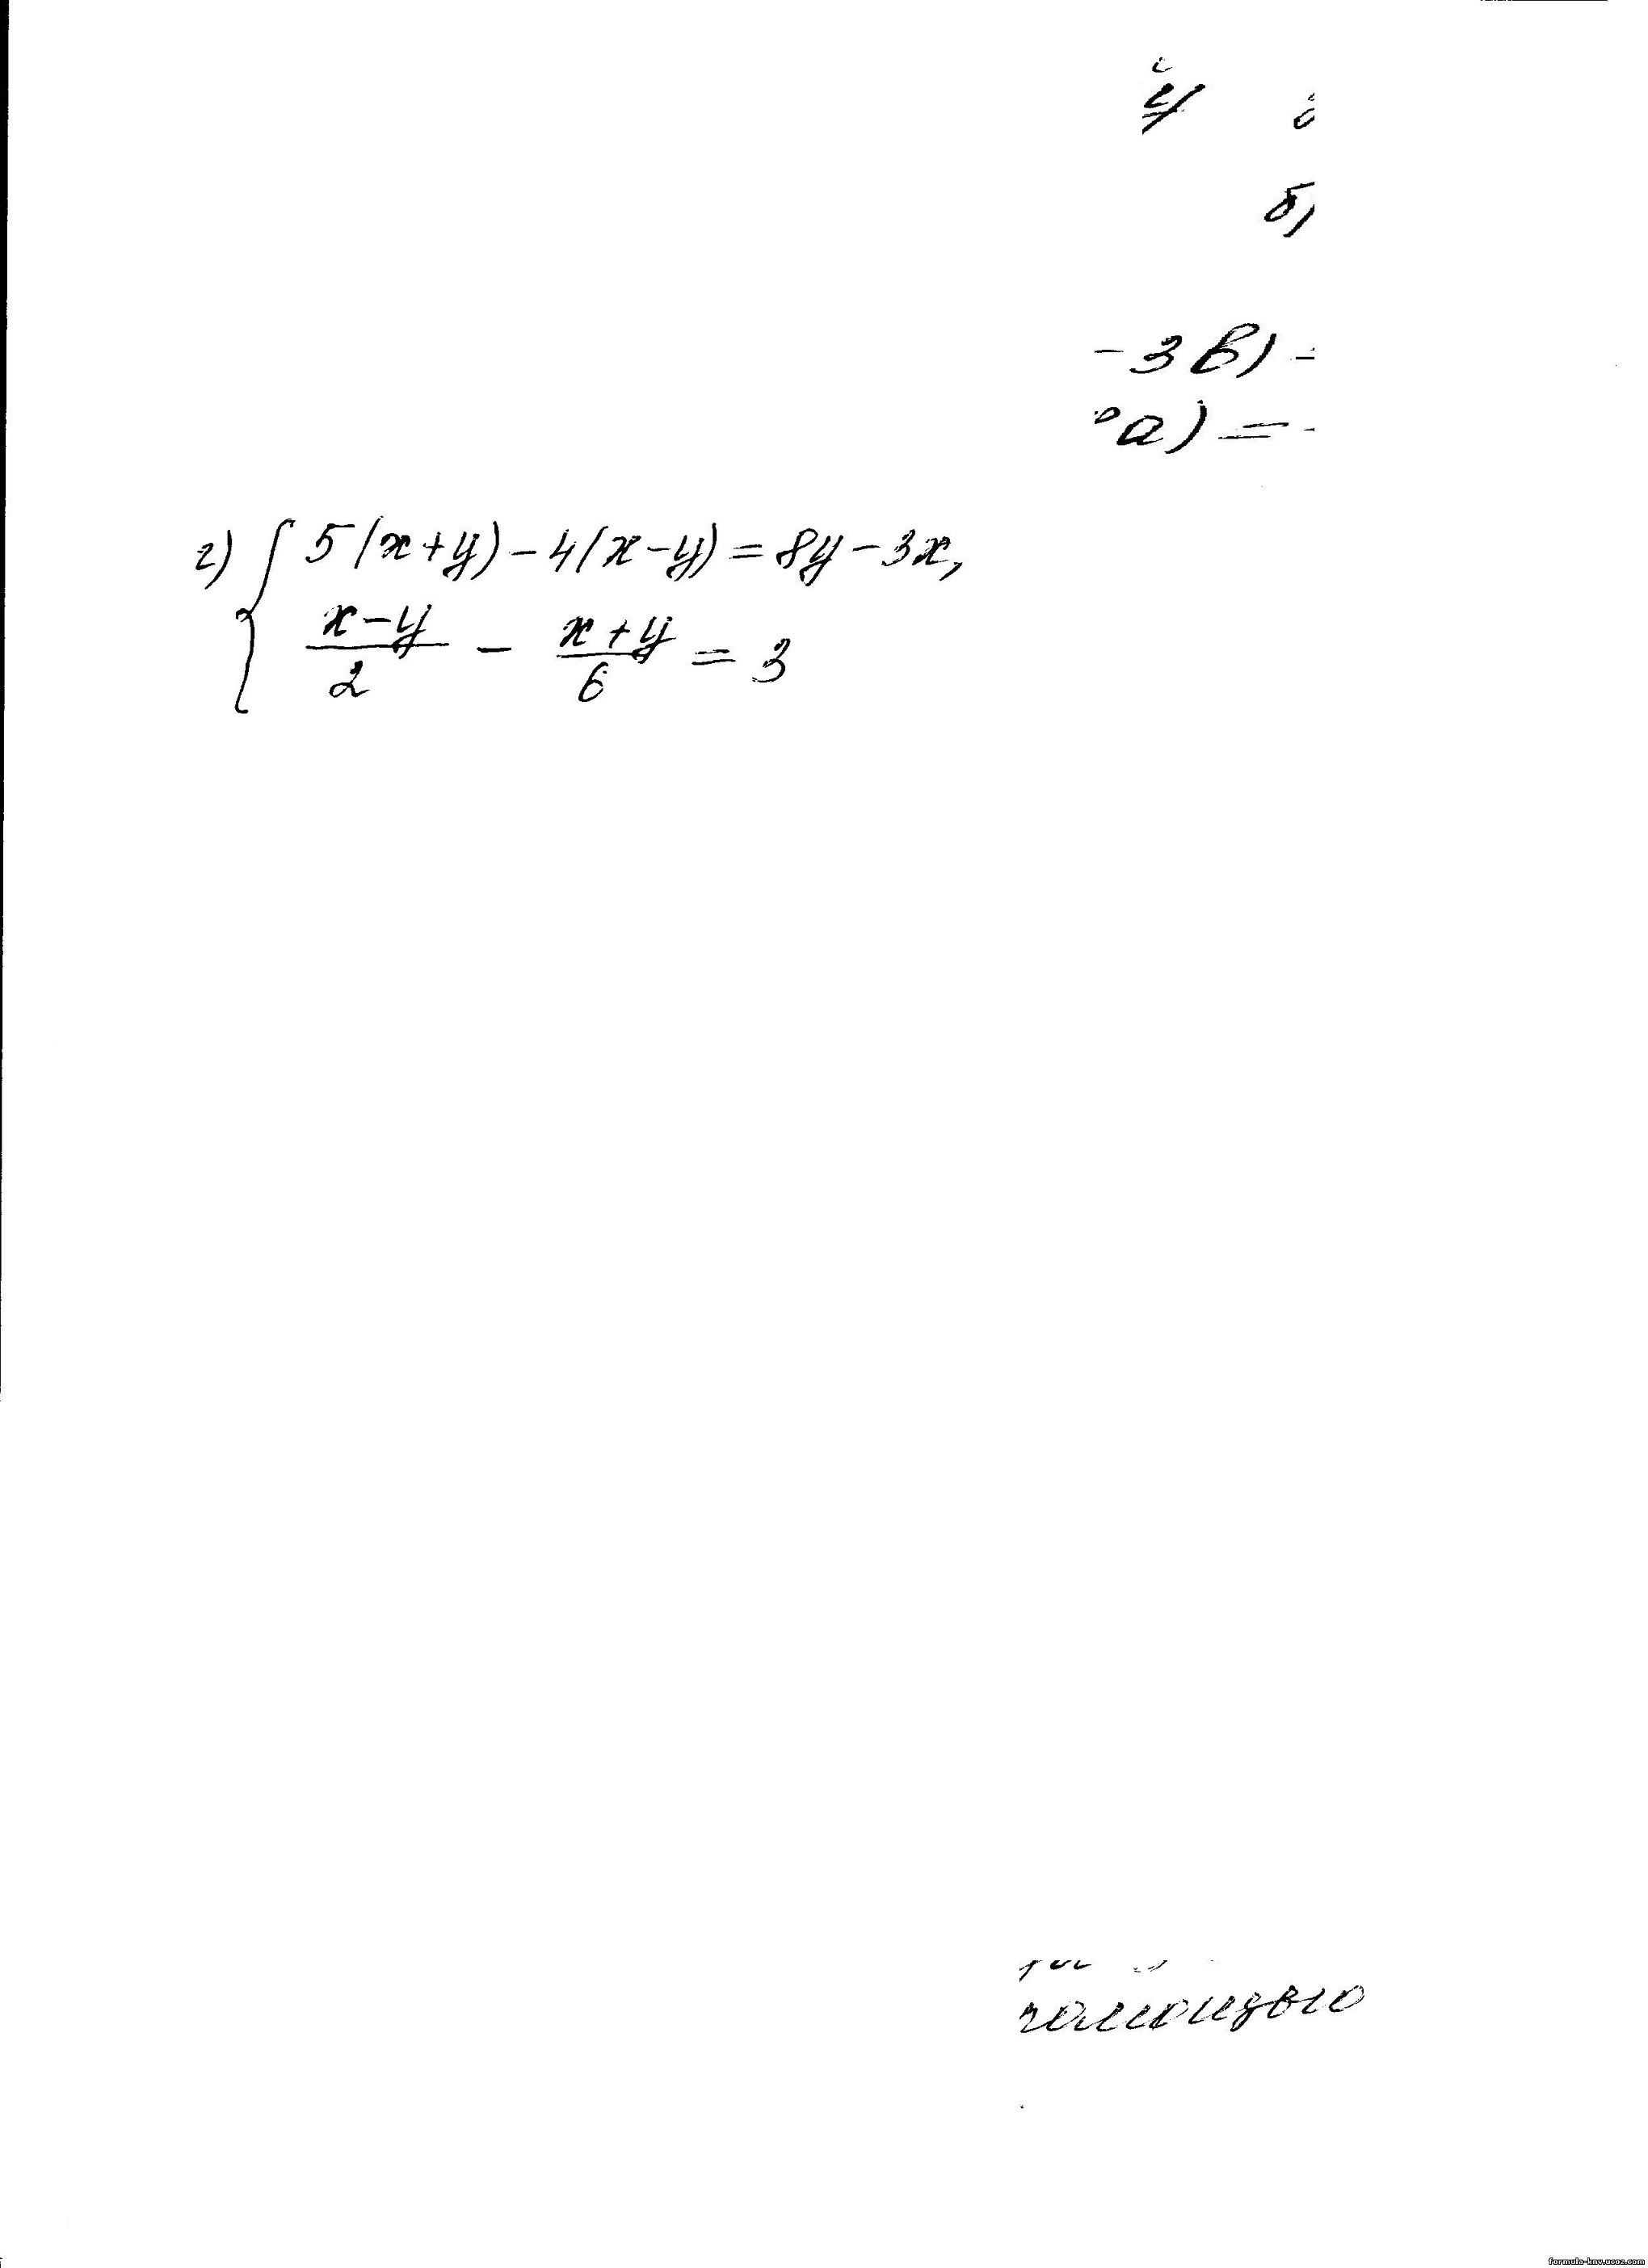 б)
- 3 в) =
а) =
г) { 5(x+y) - 4(x-y) = 8y - 3x,
x-y/2 - x+y/6 = 3
помощью
formula-knv.ucoz.com